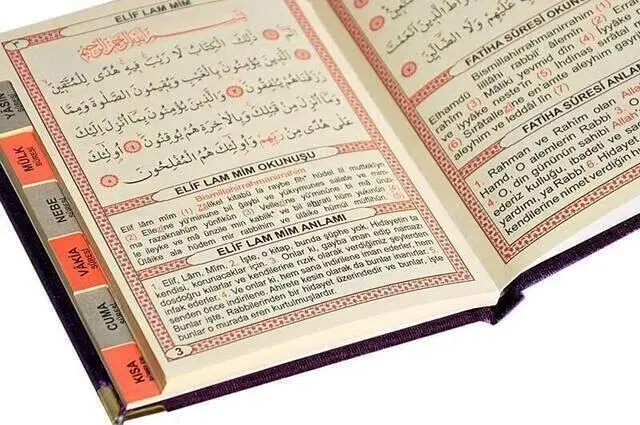 ELİF LAM MİM
٣
ذٰلِكَ الْكِتَابُ لَا رَيْبَ فِيهِ هُدًى لِلْمُتَّقِينَ
الَّذِينَ يُؤْمِنُونَ بِالْغَيْبِ وَيُقِيمُونَ الصَّلٰوةَ وَمِمَّا
رَزَقْنَاهُمْ يُنْفِقُونَ وَالَّذِينَ يُؤْمِنُونَ بِمَا أُنْزِلَ إِلَيْكَ
وَمَا أُنْزِلَ مِنْ قَبْلِكَ وَبِالْاٰخِرَةِ هُمْ يُوقِنُونَ أُولٰئِكَ
عَلٰى هُدًى مِنْ رَبِّهِمْ وَأُولٰئِكَ هُمُ الْمُفْلِحُونَ
ELİF LAM MİM OKUNUŞU
Bismillahirrahmanirrahim
Elif lâm mîm (1) Zâlikel kitâbü lâ raybe fîh* hüdel lil müttekîyn
(2) Ellezîne yü'minune bil ğaybi ve yukıymunes salate ve mim-
ma razaknahüm yünfikûn (3) Vellezîne yü'minûne bi mâ ünzi-
le ileyke ve mâ ünzile min kablik* ve bil ahırati hüm yukınun (4)
Ülâike ala hüdem mir rabbihim ve ülâike hümül müflihûn (5)
ELİF LAM MİM ANLAMI
1. Elif, Lâm, Mîm. 2. İşte, o kitap, bunda şüphe yok. Hidayetin ta
kendisi, korunacaklar için. 3. Onlar ki, gayba iman edip namazı
dosdoğru kılarlar ve kendilerine rızık olarak verdiğimiz şeylerden
infak ederler. 4. Ve onlar ki, hem sana indirilene iman ederler, hem
senden önce indirilene. Ahirete kesin olarak da bunlar inanırlar.
Bunlar işte, Rabbilerinden bir hidayet üzerindedir ve bunlar, işte
bunlar o murada eren kurtulmuşlardır.
3
YASİN
MÜLK
SÛRESİ
NEBE
SÛRESİ
VAKIA
SÛRESİ
CUMA
KISA
عَلَيْهِمْ وَلَا الضَّالِّينَ
FATİHA SÛRESİ OKUNUŞU
Bismillahirrahmanirrahim
Elhamdü lillâhi rabbil' âlemîn (2) Errahm
(4) Mâliki yevmid dîn (4) İyyâke
ve iyyâke neste'în (5) İhdinas sırâtal
(6) Sırâtallezîne en'amte aleyhim ğayr
aleyhim ve leddâl lîn (7)
FATİHA SÛRESİ ANLA
Rahman ve Rahîm olan Alla
Hamd, O alemlerin Rabbi
4. O din gününün sahibi
ederiz kulluğu, ibadeti ve sa
yardımı, ya Rab! 6. Hidayet
kendilerine nimet verdiğin